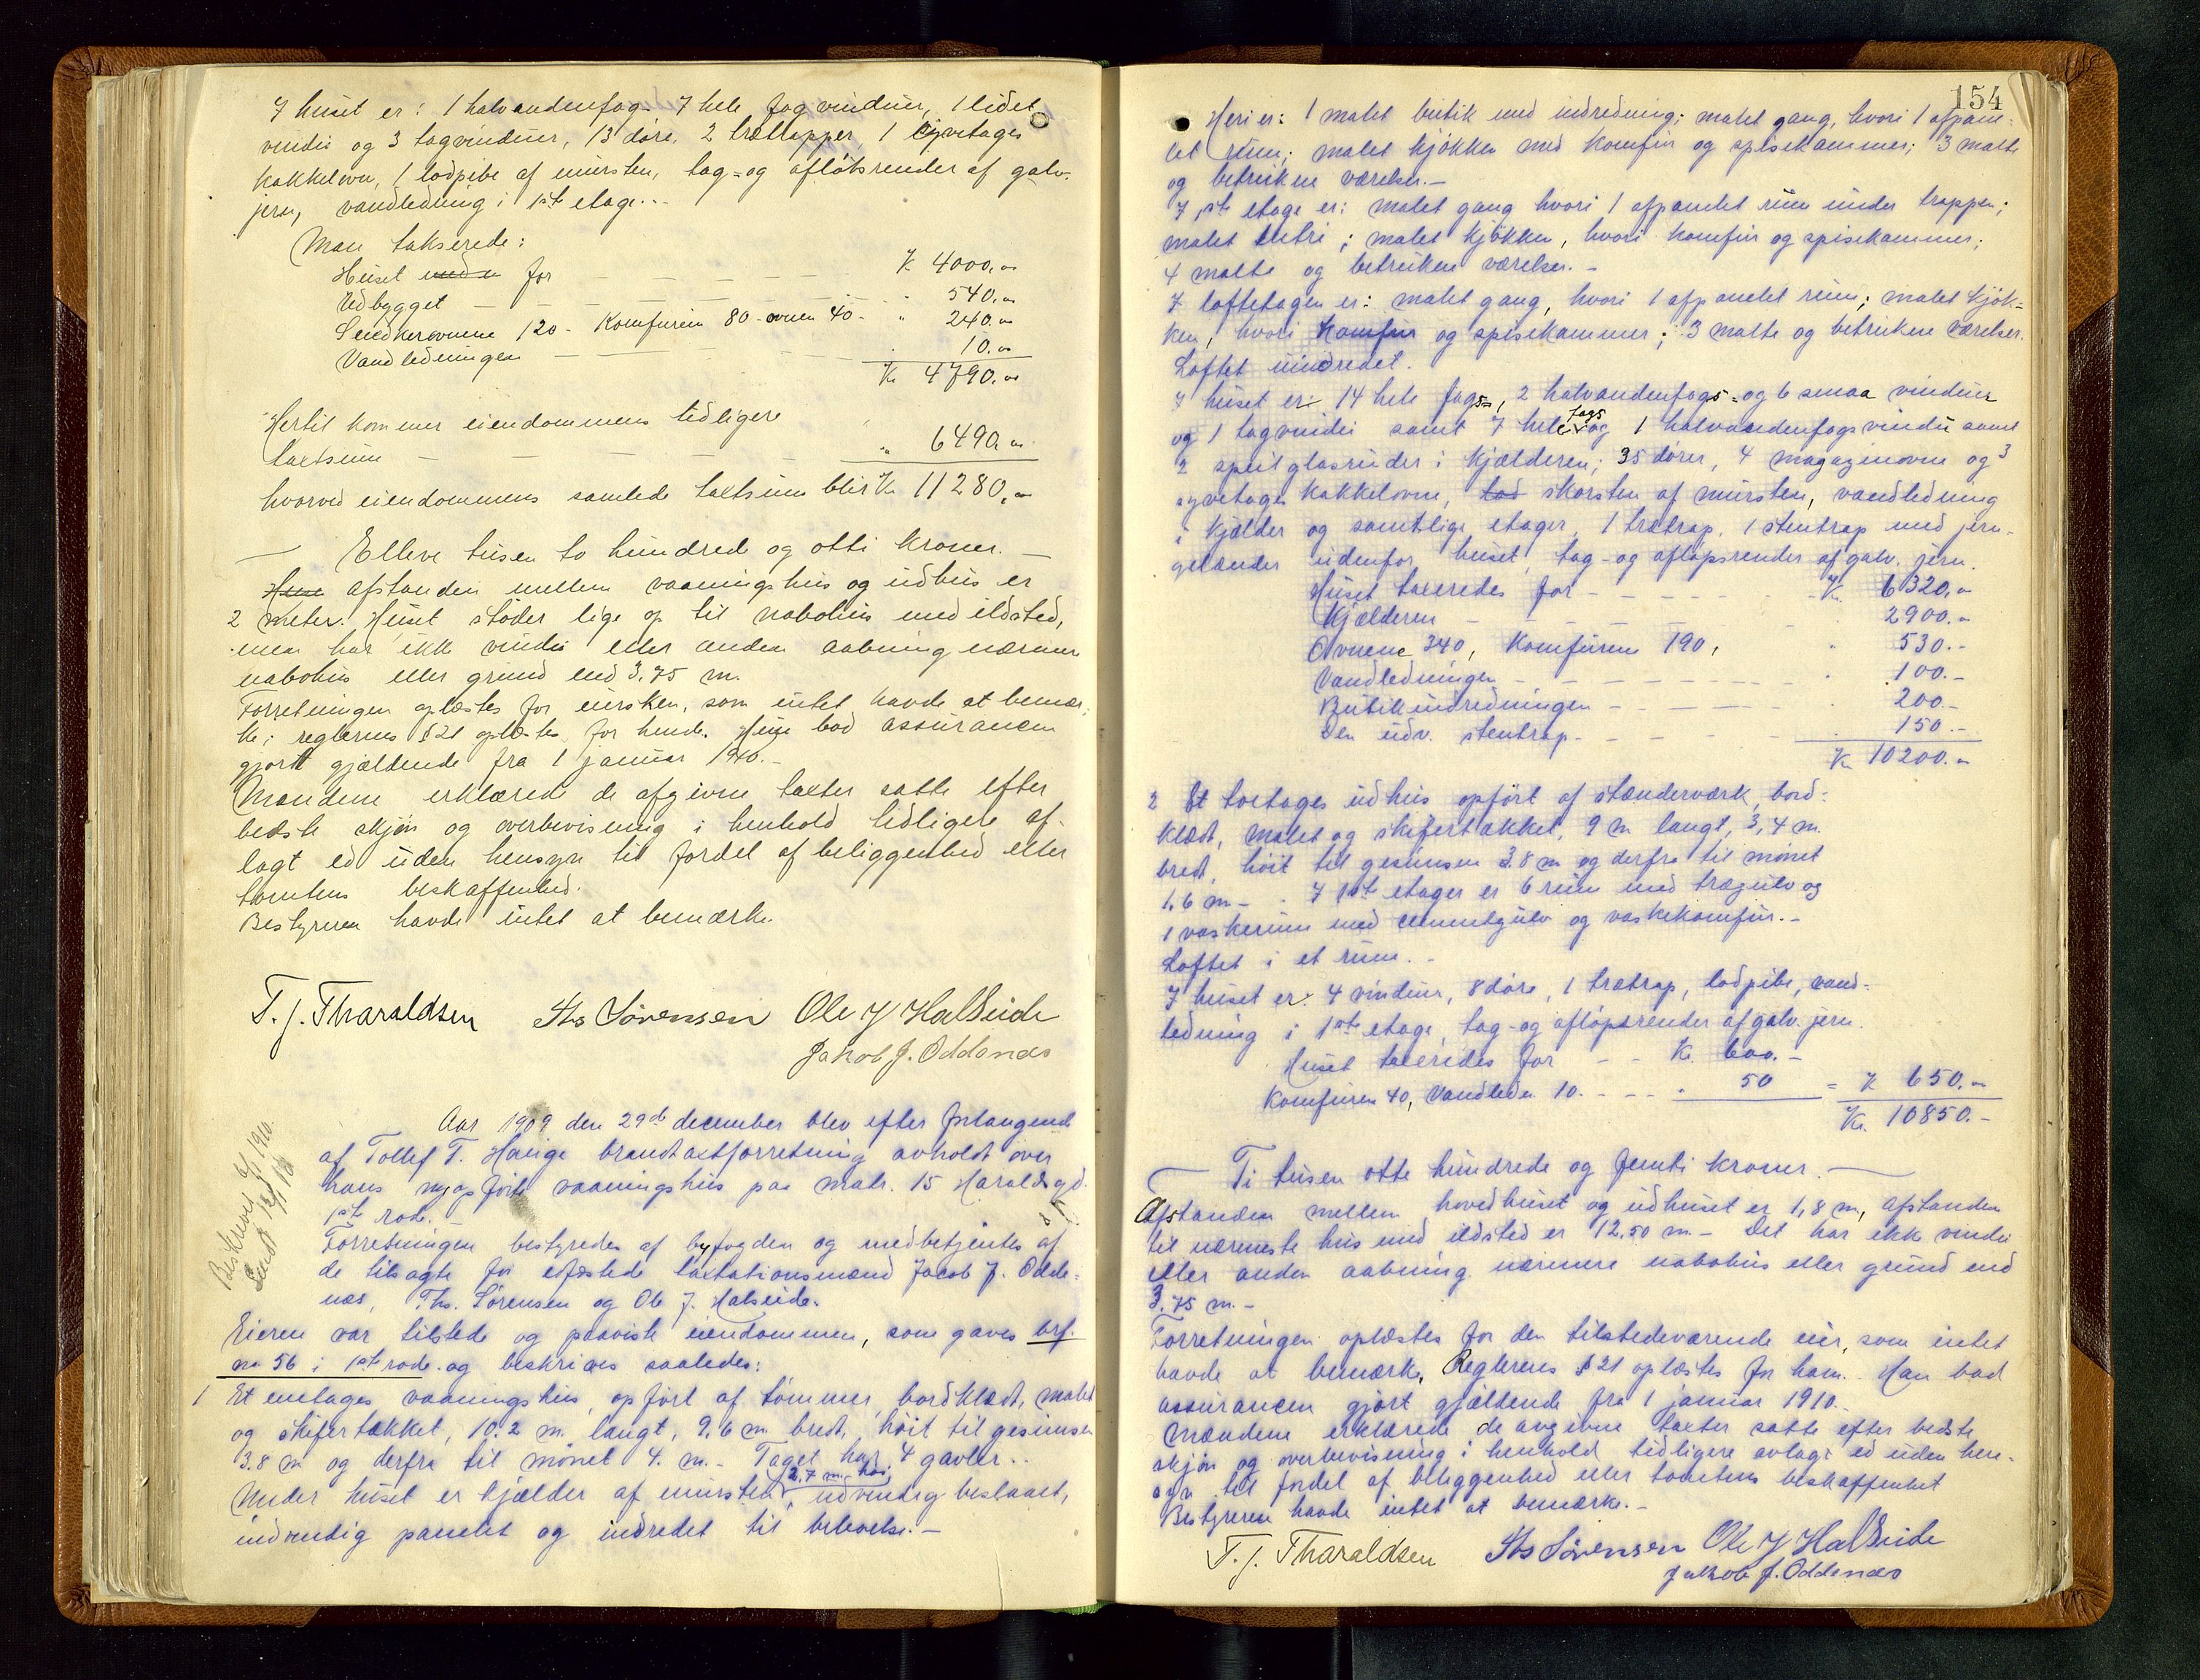 I huset er: 1 halvandenfag- 7 hele fag vinduer, 1 lidet
vindu og 3 tagvinduer, 13 døre, 2 trætrapper, 1 syvetages
kakkelovn, 1 lodpibe af mursten, tag- og afløbsrender af galv.
jern, vandledning i 1ste etage.-
Man takserede:
Huset for — — — K 4000,00
Udbygget — — — " 540,00
120 - Komfuren 80 - ovnen 40 - " 240.00
Vandledningen — — — " 10.00
Kr 4790.00
Hertil kommer eiendommens tidligere
taxtsum — — — " 6490.00
hvorved eiendommens samlede taxtsum blir Kr 11280,00
— Elleve tusen to hundred og otti kroner. —
afstanden mellem vaaningshus og udhus er
2 meter. Huset støder lige op til nabohus med ildsted,
men har ikke vindu eller anden aabning nærmere
nabohus eller grund end 3,75 m.
Forretningen oplæstes for eiersken, som intet havde at bemær-
ke; reglernes § 21 oplæstes for hende. Hun bad assurancen
gjort gjældende fra 1 januar 1910.-
Mændene erklærede de afgivne taxter satte efter
bedste skjøn og overbevisning i henhold tidligere af-
lagt ed uden hensyn til fordel af beliggenhed eller
tomtens beskaffenhed.
Bestyreren havde intet at bemærke.
T. J. Tharaldsen Ths Sørensen Ole J Halseide
Jakob J. Oddenæs
Beskrevet 6/1 1910.
Sendt 12/1 10
Aar 1909 den 29de december blev efter forlangende
af Tollef T. Hauge brandtaxtforretning avholdt over
hans nyopførte vaaningshus paa matr. 15 Haraldsgd.
1ste rode. -
Forretningen bestyredes af byfogden og medbetjentes af
de tilsagte for edfæstede taxtationsmænd Jacob J. Odde-
næs, Ths. Sørensen og Ole J. Halseide.
Eieren var tilstede og paaviste eiendommen, som gaves brf.
no 56 i 1ste rode og beskrives saaledes:
1 Et enetages vaaningshus, opført af tømmer, bordklædt, malet
og skifertækket, 10.2 m. langt, 9,6 m. bredt, høit til gesimsen
3.8 m og derfra til mønet 4. m. - Taget har 4 gavler. -
2,7 m. høi
Under huset er kjælder af mursten, udvendig beslaaet,
indvendig panelet og indredet til beboelse. -
154
Heri er: 1 malet butik med indredning; malet gang, hvori 1 afpane-
let rum; malet kjøkken med komfur og spisekammer; 3 malte
og betrukne værelser. -
I 1ste etage er: malet gang hvori 1 afpanelet rum under trappen;
malet entri; malet kjøkken, hvori komfur og spisekammer;
4 malte og betrukne værelser. -
I loftetagen er: malet gang, hvori 1 afpanelet rum; malet kjøk-
ken, hvori komfur og spisekammer; 3 malte og betrukne værelser.
Loftet uindredet.
I huset er 14 hele fags-, 2 halvandenfags- og 6 smaa vinduer
og 1 tagvindu samt 7 hele fags og 1 halvandenfagsvindu samt
2 speilglasruder i kjælderen; 35 dører, 4 magazinovne og 3
syvetages kakkelovne, skorsten af mursten, vandledning
i kjælder og samtlige etager, 1 trætrap, 1 stentrap med jern-
gelænder udenfor huset, tag- og afløpsrender af galv. jern.
Huset taxeredes for - - - - - K. 6320,00
Kjælderen - - - 2900.-
Ovnene 340, Komfuren 190, " 530.-
Vandledningen - - - - " 100.-
Butikindredningen - - - - 200.-
Den udv. stentrap - - - - 150.-
Kr 10200.00
2 Et toetages udhus opført af stænderværk, bord-
klædt, malet og skifertækket, 9 m langt, 3,4 m.
bredt, høit til gesimsen 3.8 m og derfra til mønet
1.6 m -. I 1ste etager er 6 rum med trægulv og
1 vaskerum med cementgulv og vaskekomfur. -
Loftet i et rum. -
I huset er: 4 vinduer, 8 døre, 1 trætrap, lodpibe, vand-
ledning i 1ste etage, tag- og afløpsrender af galv. jern.
Huset taxeredes for - - K. 600.-
Komfuren 40, vandledn 10. - - - " 50 = K 650.00
Kr. 10850.-
— Ti tusen otte hundrede og femti kroner. —
Afstanden mellem hovedhuset og udhuset er 1,8 m, afstanden
til nærmeste hus med ildsted er 12.50 m. - Det har ikke vindu
eller anden aabning nærmere nabohus eller grund end
3.75 m. -
Forretningen oplæstes for den tilstedeværende eier, som intet
havde at bemærke, Reglernes § 21 oplæstes for ham. Han bad
assurancen gjort gjældende fra 1 januar 1910.
Mændene erklærede de avgivne taxter satte efter bedste
skjøn og overbevisning i henhold tidligere avlagt ed uden hen-
syn til fordel af beliggenhed eller tomtens beskaffenhet
Bestyreren havde intet at bemærke. -
T. J. Tharaldsen Ths Sørensen Ole J Halseide
Jakob J. Oddenæs